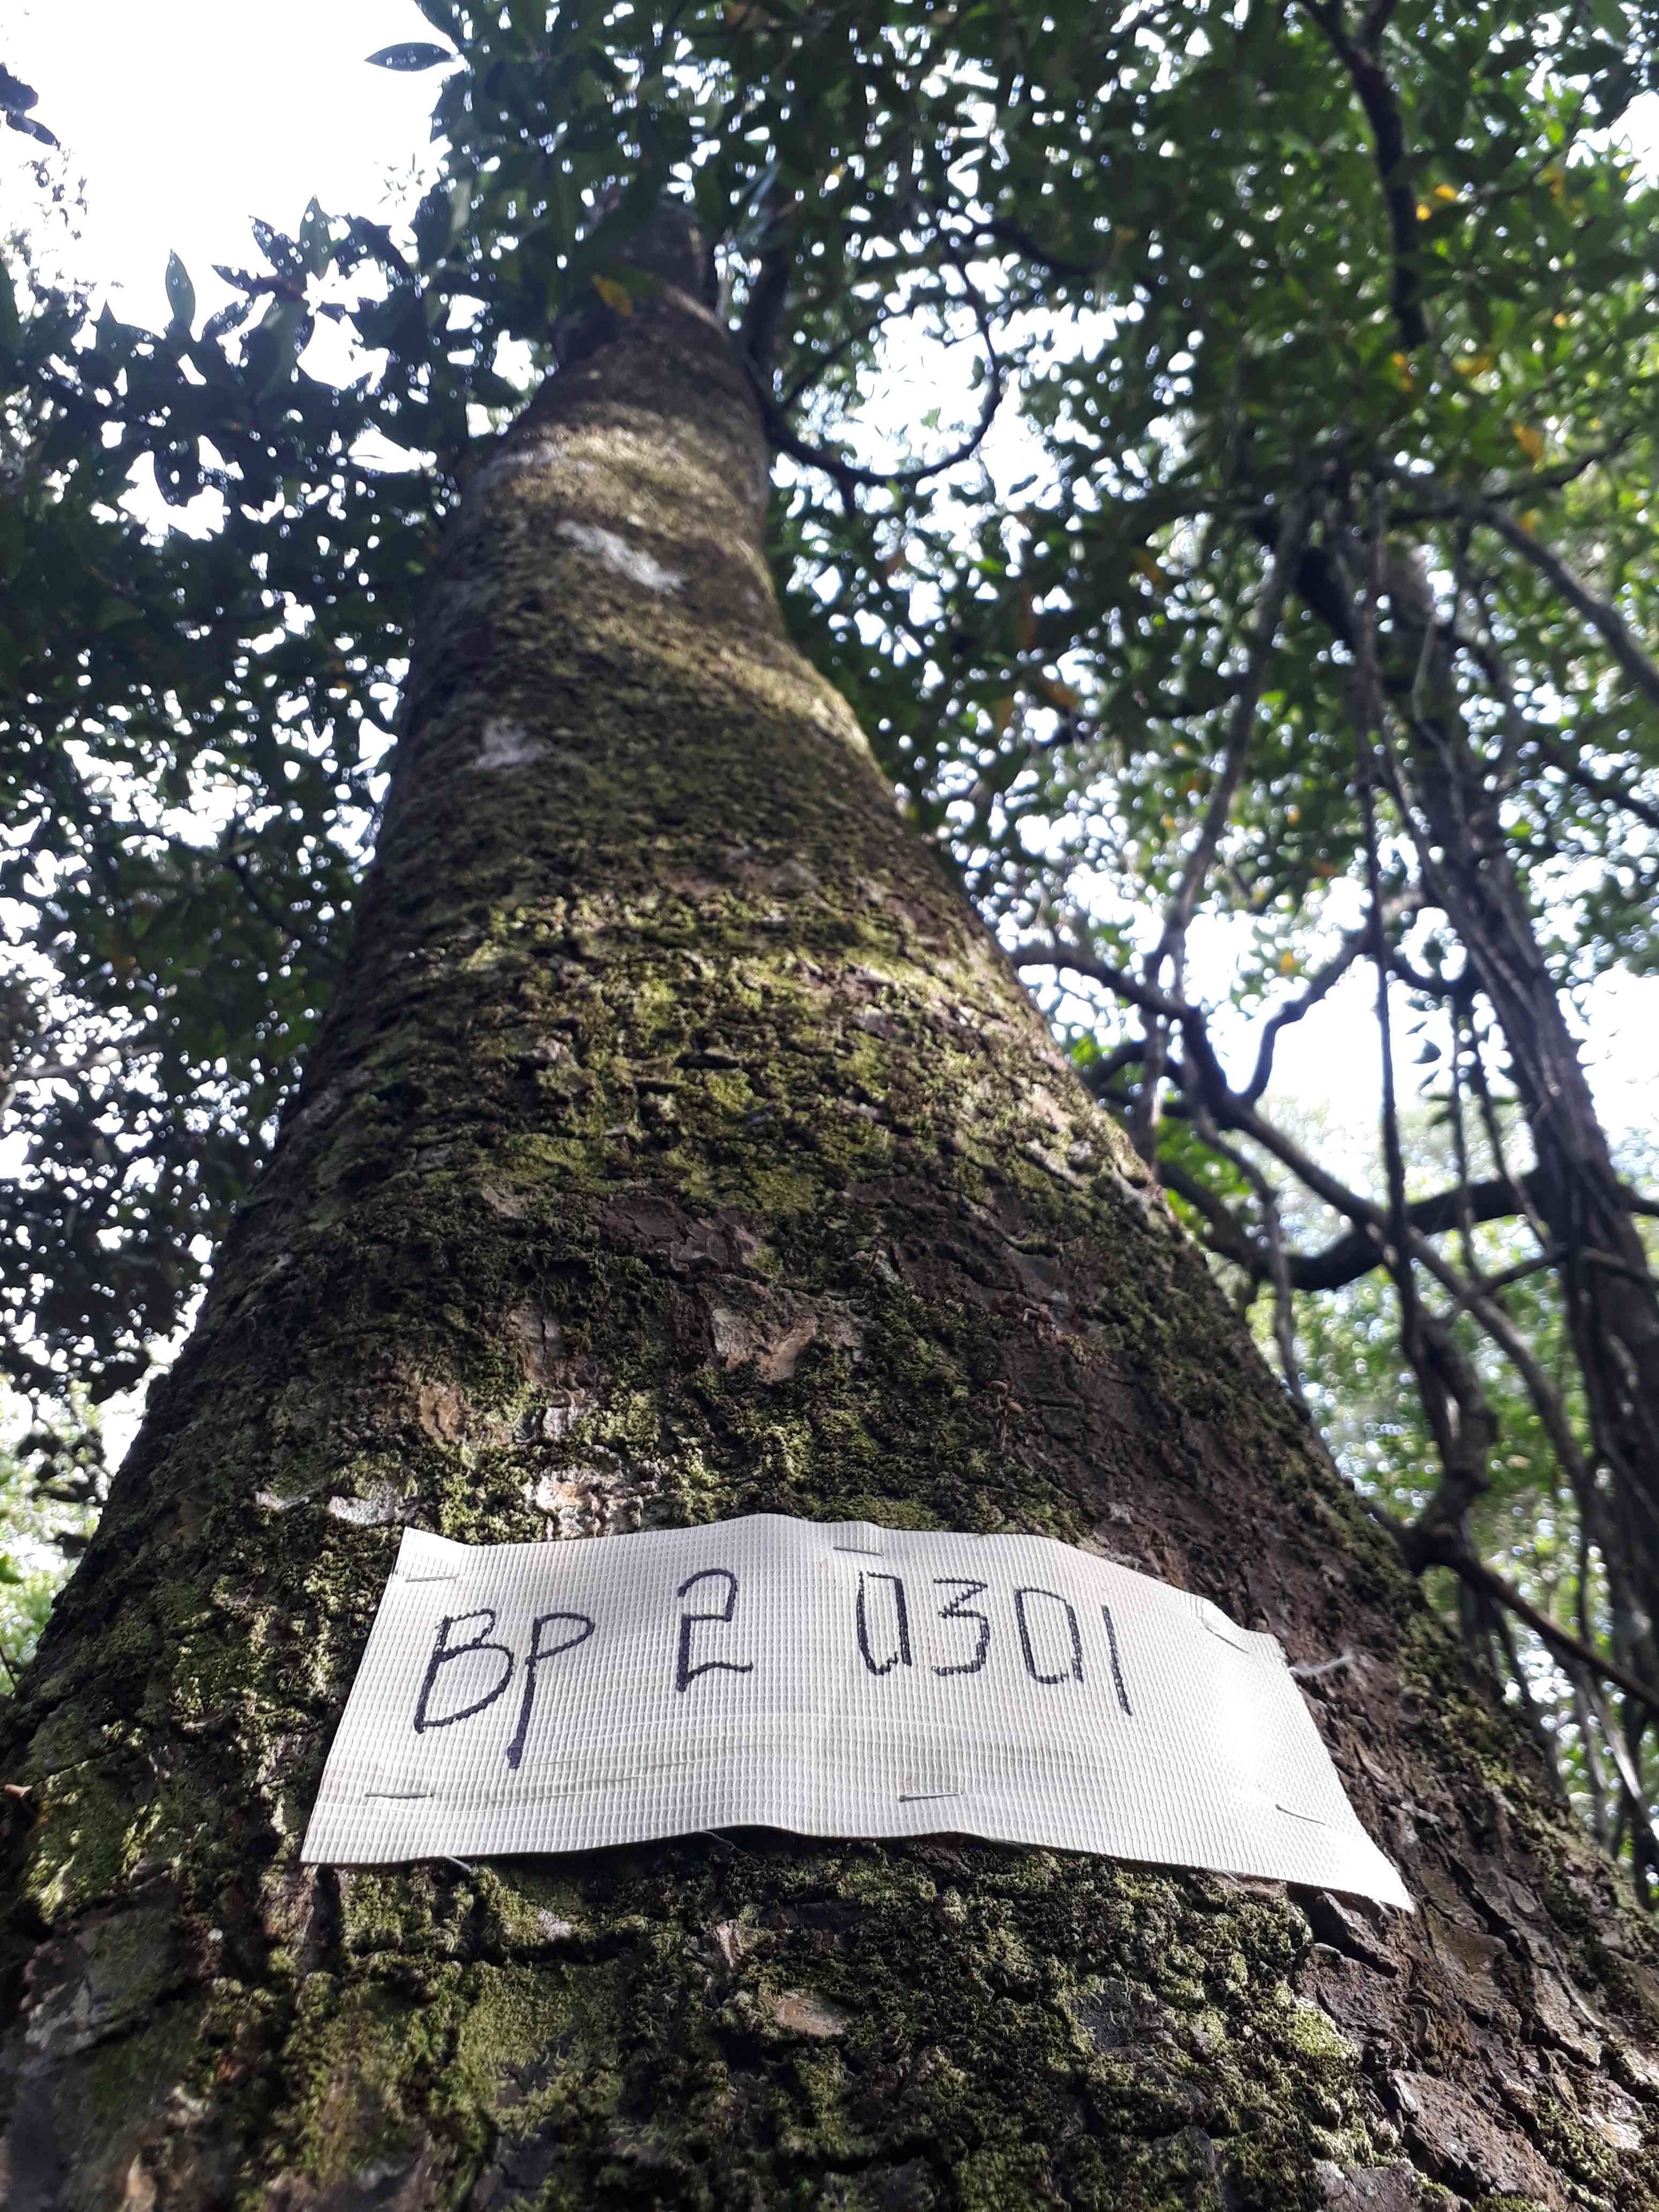 BP 2 0301